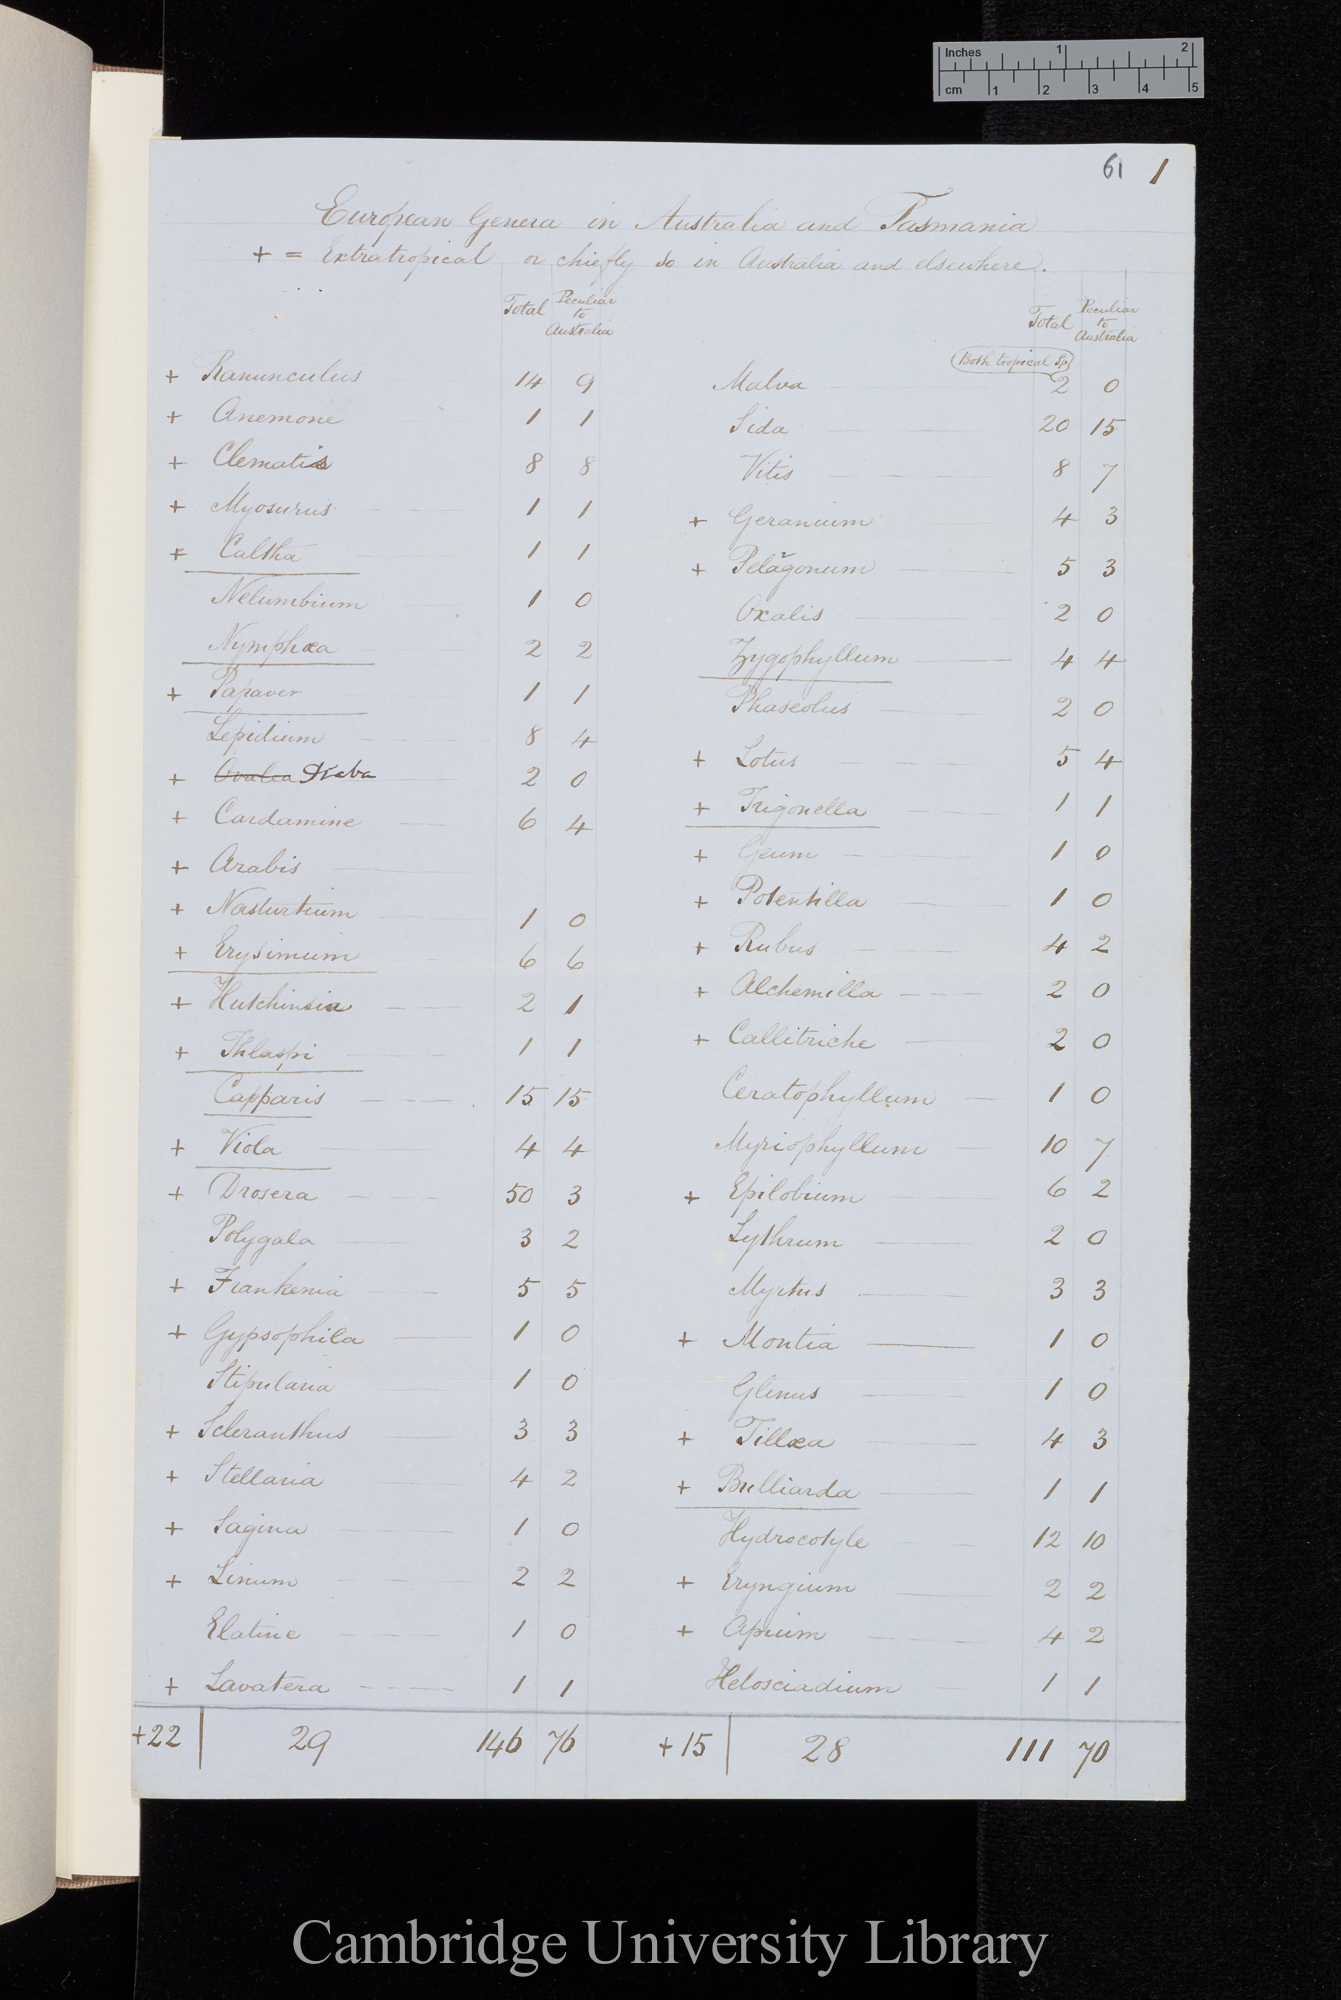 Inches 1 2
cm 1 2 3 4 5
61 1
European Genera in Australia and Tasmania
+ = Extratropical or chiefly so in Australia and elsewhere.
Total Peculiar to Australia
+ Ranunculus 14 9
+ Anemone 1 1
+ Clematis 8 8
+ Myosurus 1 1
+ Caltha 1 1
Nelumbium 1 0
Nymphæa 2 2
+ Papaver 1 1
Lepidium 8 4
+ Draba 2 0
+ Cardamine 6 4
+ Arabis
+ Nasturtium 1 0
+ Erysimum 6 6
+ Hutchinsia 2 1
+ Thlaspi 1 1
Capparis 15 15
+ Viola 4 4
+ Drosera 50 3
Polygala 3 2
+ Frankenia 5 5
+ Gypsophila 1 0
Stipularia 1 0
+ Scleranthus 3 3
+ Stellaria 4 2
+ Sagina 1 0
+ Linum 2 2
Elatine 1 0
+ Lavatera 1 1
+22 29 146 76
Total Peculiar to Australia
Both tropical Sp
Malva 2 0
Sida 20 15
Vitis 8 7
+ Geranium 4 3
+ Pelargonum 5 3
Oxalis 2 0
Zygophyllum 4 4
Phaseolus 2 0
+ Lotus 5 4
+ Trigonella 1 1
+ Geum 1 0
+ Potentilla 1 0
+ Rubus 4 2
+ Alchemilla 2 0
+ Callitriche 2 0
Ceratophyllum 1 0
Myriophyllum 10 7
+ Epilobium 6 2
Lythrum 2 0
Myrtus 3 3
+ Montia 1 0
Glinus 1 0
+ Tillæa 4 3
+ Bulliarda 1 1
Hydrocotyle 12 10
+ Eryngium 2 2
+ Apium 4 2
Helosciadium 1 1
+15 28 111 70
Cambridge University Library